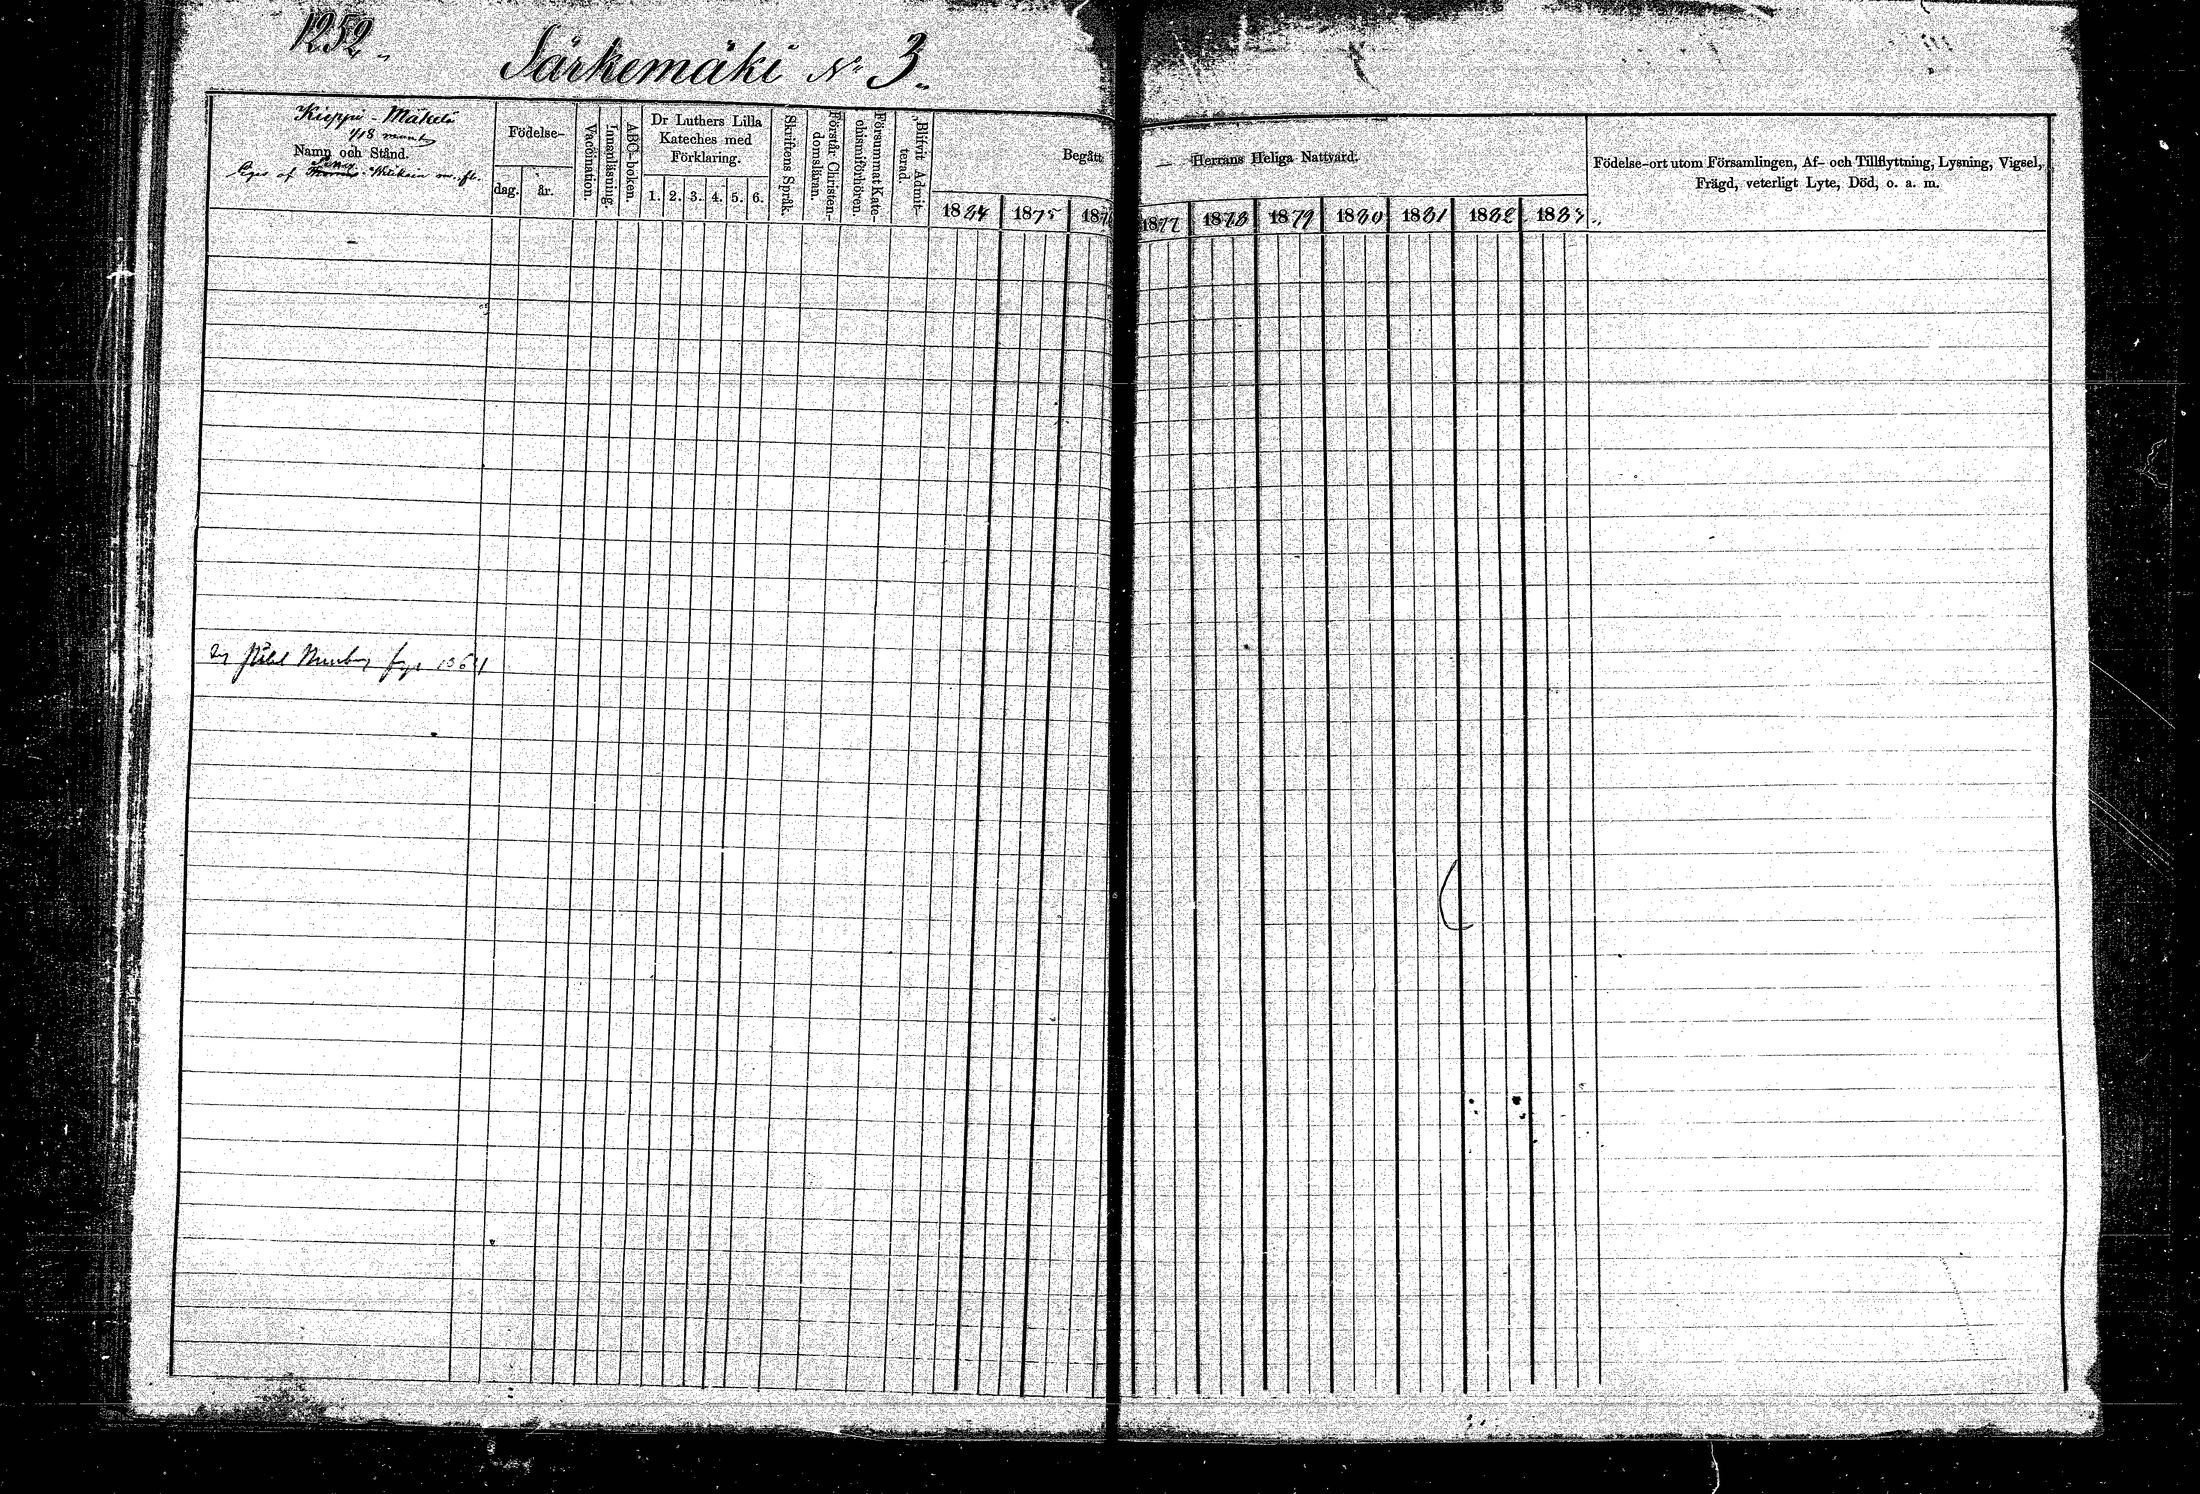 1252.
Särkemäki No 3.
Kieppi - Mäkelä
1/18 mant
Namn och Stånd.
Eges af
Födelse-
dag. år.
Vaccination.
Innanläsning.
ABC-boken.
Dr Luthers Lilla
Kateches med
Förklaring.
1. 2. 3. 4. 5. 6.
Skriftens Språk.
Förstår Christen-
domsläran.
Försummat Kate-
chismiförhören.
Blifvit Admit-
terad.
Begått
Herrans Heliga Nattvard.
1874 1875 1876 1877 1878 1879 1880 1881 1882 1883
Födelse-ort utom Församlingen, Af- och Tillflyttning, Lysning, Vigsel,
Frägd, veterligt Lyte, Död, o. a. m.